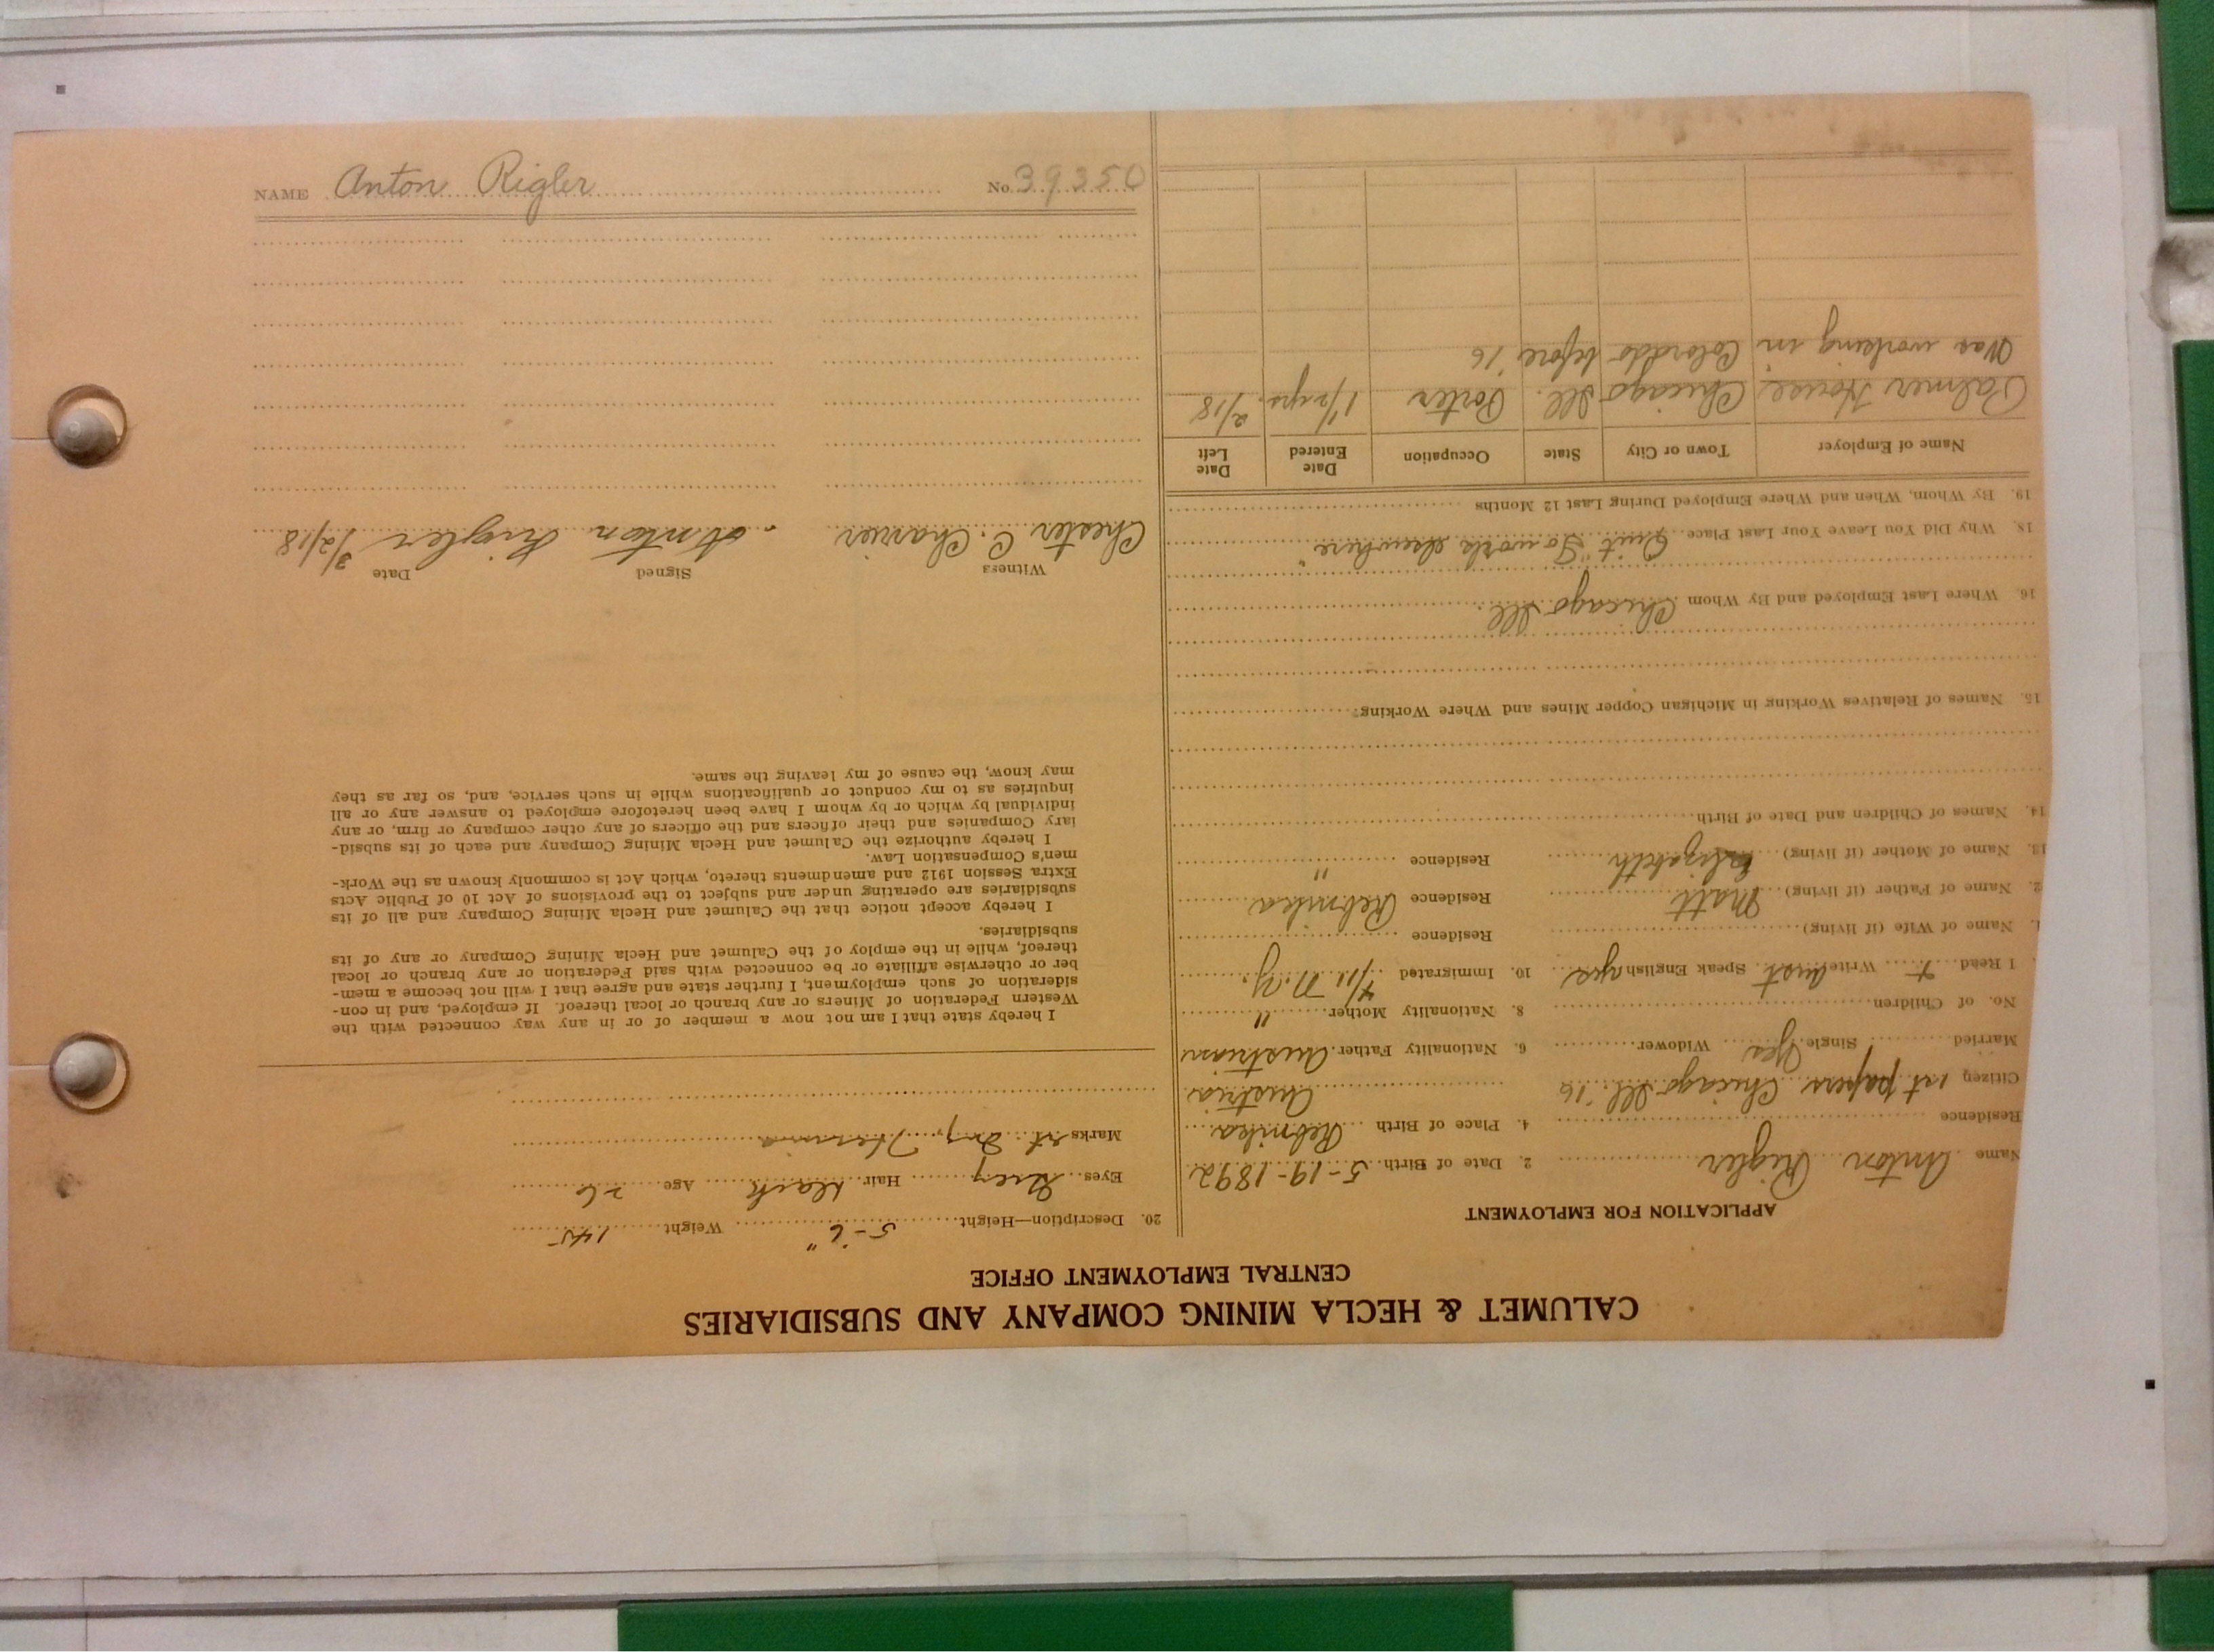 CALUMET & HECLA MINING COMPANY AND SUBSIDIARIES
CENTRAL EMPLOYMENT OFFICE
APPLICATION FOR EMPLOYMENT
Name Anton Rigler 2. Date of Birth 5-19-1892
Residence 4. Place of Birth Rebnika
Citizen 1st papers Chicago Ill '16 Austria
Married Single Yes Widower 6. Nationality Father Austrian
No. of Children 8. Nationality Mother "
I Read + Write Aust Speak English yes 10. Immigrated 4/11 N.Y.
1. Name of Wife (if living) Residence
2. Name of Father (if living) Matt Residence Rebnika
13. Name of Mother (if living) Elizabeth Residence "
14. Names of Children and Date of Birth
15. Names of Relatives Working in Michigan Copper Mines and Where Working
16. Where Last Employed and By Whom Chicago Ill.
18. Why Did You Leave Your Last Place Quit "To work elsewhere"
19. By Whom, When and Where Employed During Last 12 Months
Name of Employer Town or City State Occupation Date Entered Date Left
Palmer House Chicago Ill. Porter 1 1/2 yrs. 2/18
Was working in Colorado before '16
20. Description—Height 5-6" Weight 145
Eyes Grey Hair black Age 26
Marks Hernia
I hereby state that I am not now a member of or in any way connected with the
Western Federation of Miners or any branch or local thereof. If employed, and in con-
sideration of such employment, I further state and agree that I will not become a mem-
ber or otherwise affiliate or be connected with said Federation or any branch or local
thereof, while in the employ of the Calumet and Hecla Mining Company or any of its
subsidiaries.
I hereby accept notice that the Calumet and Hecla Mining Company and all of its
subsidiaries are operating under and subject to the provisions of Act 10 of Public Acts
Extra Session 1912 and amendments thereto, which Act is commonly known as the Work-
men's Compensation Law.
I hereby authorize the Calumet and Hecla Mining Company and each of its subsid-
iary Companies and their officers and the officers of any other company or firm, or any
individual by which or by whom I have been heretofore employed to answer any or all
inquiries as to my conduct or qualifications while in such service, and, so far as they
may know, the cause of my leaving the same.
Witness Signed Date
Chester C. Charrier Anton Rigler 3/2/18
NAME Anton Rigler No. 39350